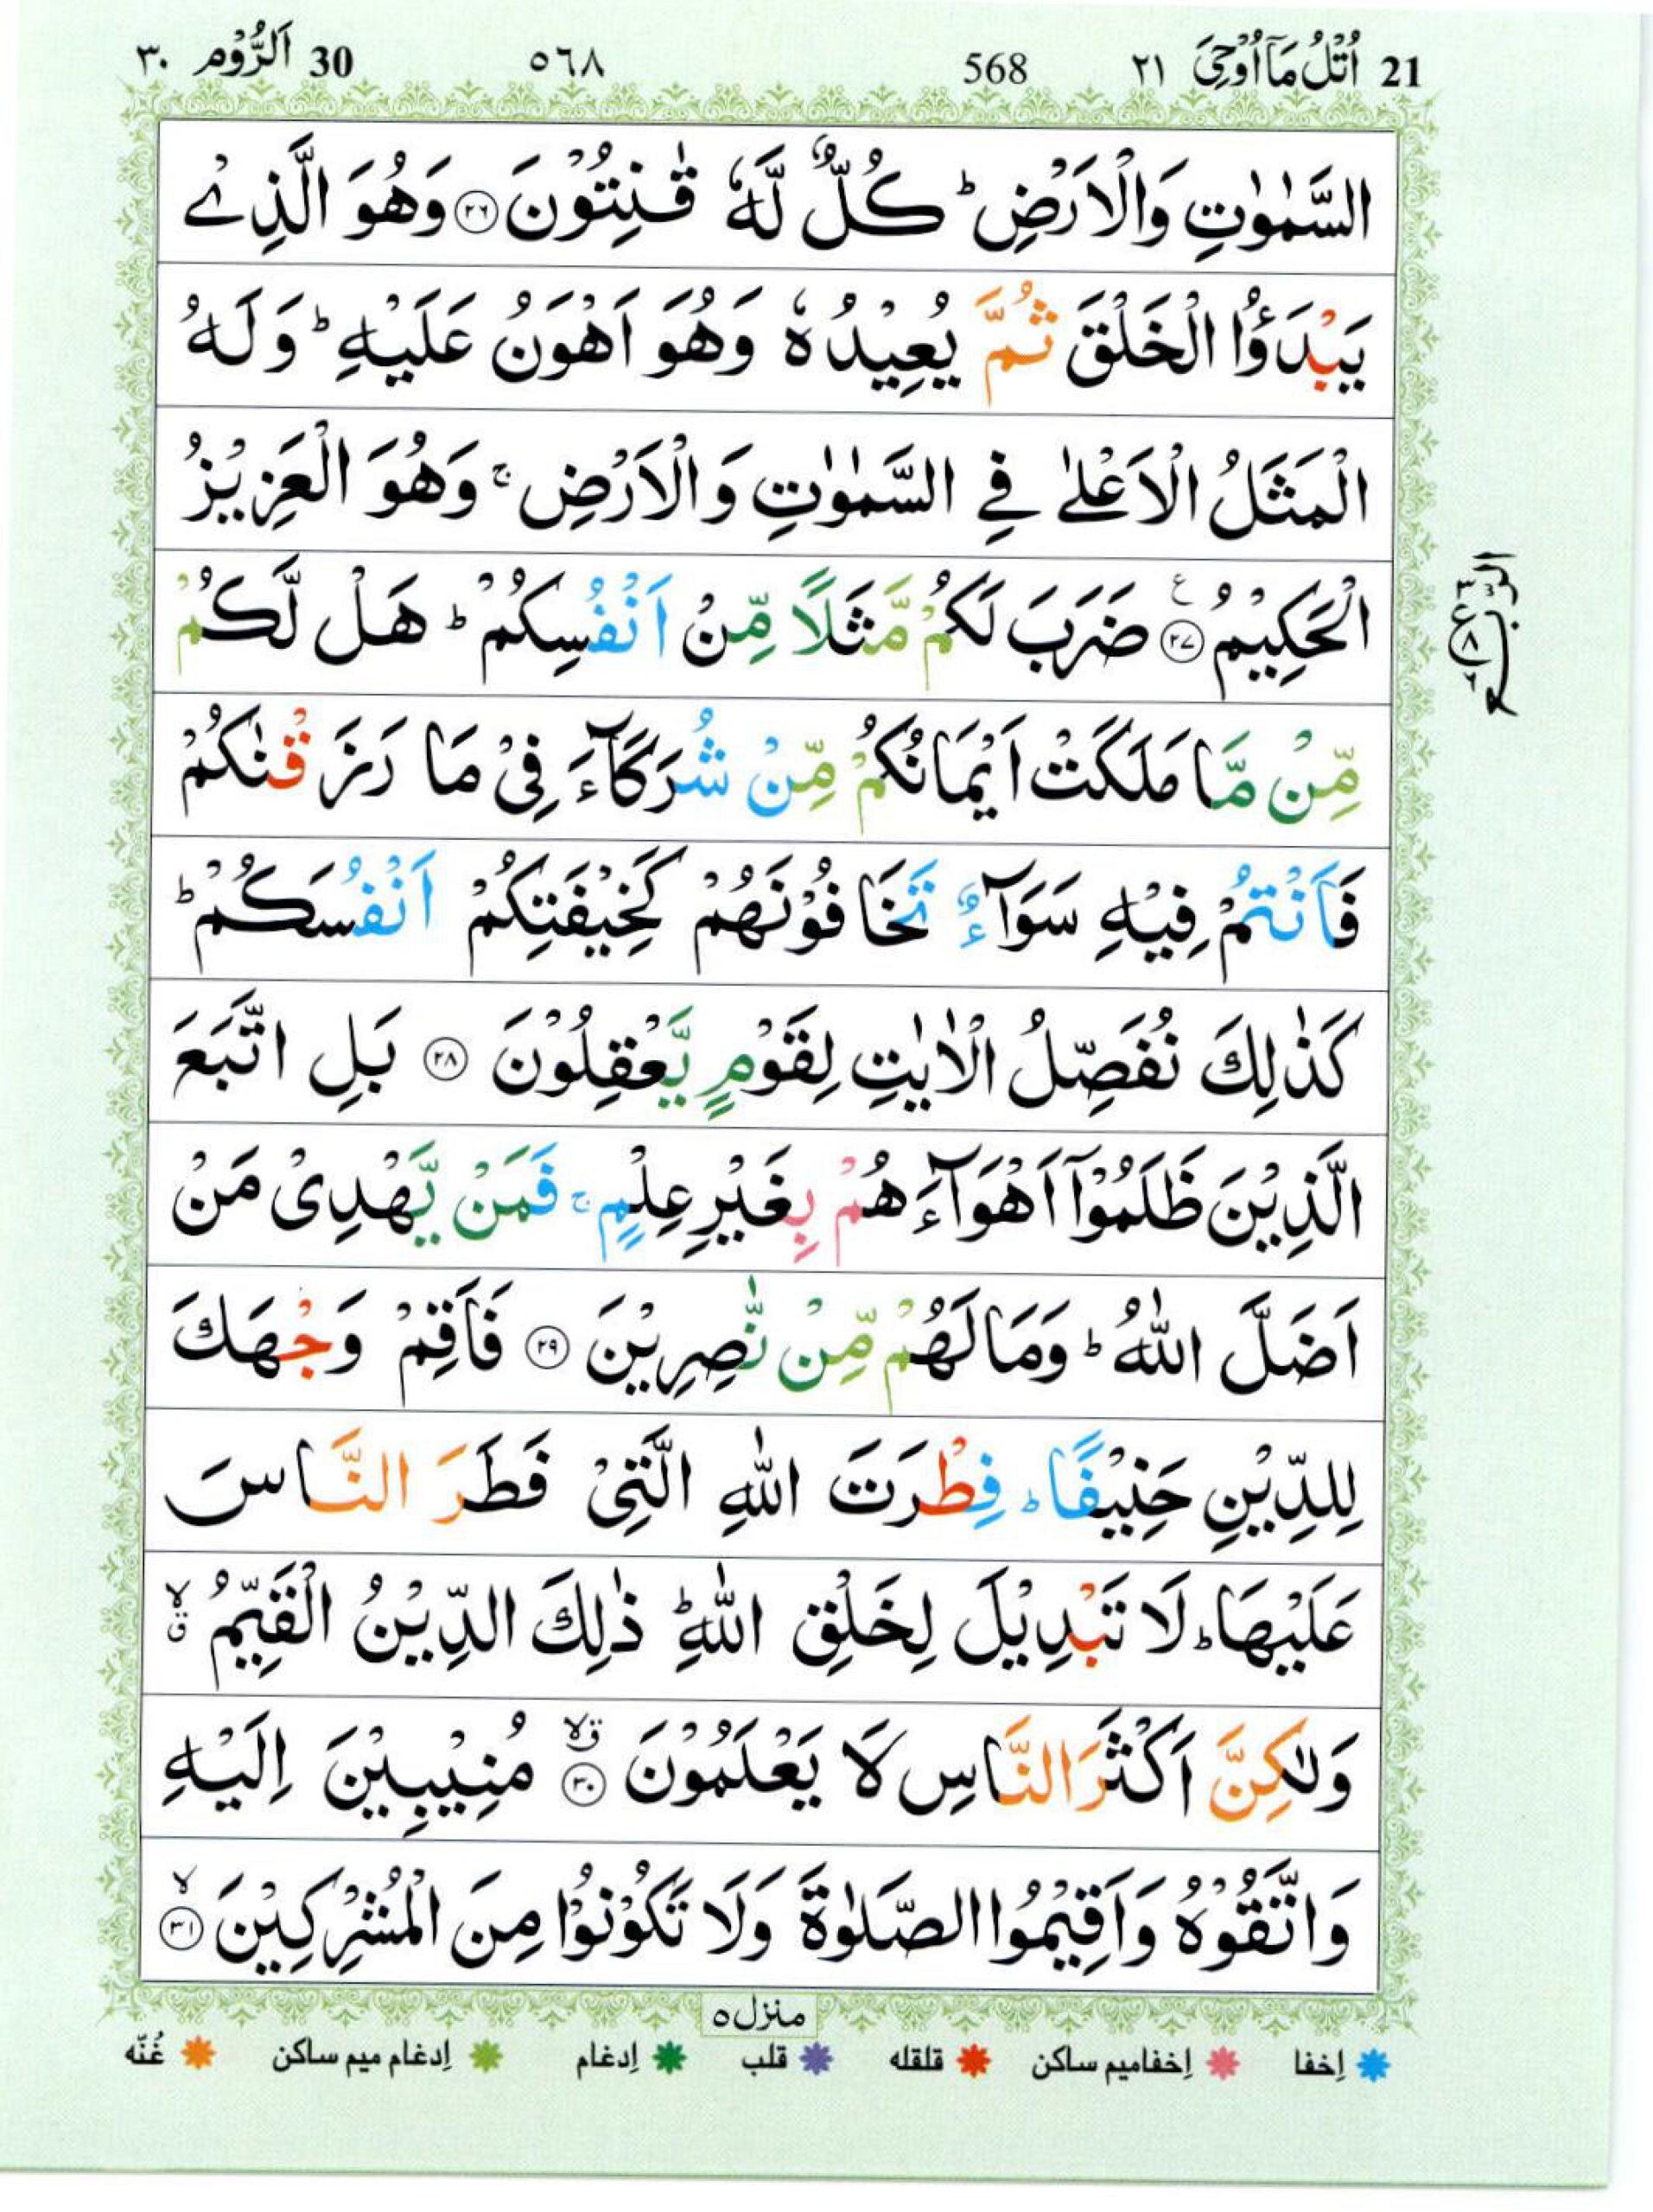 21 اُتْلُ مَاۤ اُوْحِیَ ٢١ 568 ٥٦٨ 30 اَلرُّوْم ٣٠
السَّمٰوٰتِ وَالْاَرْضِ ؕ كُلٌّ لَّهٗ قٰنِتُوْنَ ۝٢٦ وَهُوَ الَّذِیْ
یَبْدَؤُا الْخَلْقَ ثُمَّ یُعِیْدُهٗ وَهُوَ اَهْوَنُ عَلَیْهِ ؕ وَلَهُ
الْمَثَلُ الْاَعْلٰی فِی السَّمٰوٰتِ وَالْاَرْضِ ۚ وَهُوَ الْعَزِیْزُ
الْحَكِیْمُ ۝٢٧ ع ضَرَبَ لَكُمْ مَّثَلًا مِّنْ اَنْفُسِكُمْ ؕ هَلْ لَّكُمْ
مِّنْ مَّا مَلَكَتْ اَیْمَانُكُمْ مِّنْ شُرَكَآءَ فِیْ مَا رَزَقْنٰكُمْ
فَاَنْتُمْ فِیْهِ سَوَآءٌ تَخَافُوْنَهُمْ كَخِیْفَتِكُمْ اَنْفُسَكُمْ ؕ
كَذٰلِكَ نُفَصِّلُ الْاٰیٰتِ لِقَوْمٍ یَّعْقِلُوْنَ ۝٢٨ بَلِ اتَّبَعَ
الَّذِیْنَ ظَلَمُوْۤا اَهْوَآءَهُمْ بِغَیْرِ عِلْمٍ ۚ فَمَنْ یَّهْدِیْ مَنْ
اَضَلَّ اللّٰهُ ؕ وَمَا لَهُمْ مِّنْ نّٰصِرِیْنَ ۝٢٩ فَاَقِمْ وَجْهَكَ
لِلدِّیْنِ حَنِیْفًا ؕ فِطْرَتَ اللّٰهِ الَّتِیْ فَطَرَ النَّاسَ
عَلَیْهَا ؕ لَا تَبْدِیْلَ لِخَلْقِ اللّٰهِ ؕ ذٰلِكَ الدِّیْنُ الْقَیِّمُ ۙق
وَلٰكِنَّ اَكْثَرَ النَّاسِ لَا یَعْلَمُوْنَ ۝٣٠ ق لا مُنِیْبِیْنَ اِلَیْهِ
وَاتَّقُوْهُ وَاَقِیْمُوا الصَّلٰوةَ وَلَا تَكُوْنُوْا مِنَ الْمُشْرِكِیْنَ ۝٣١ لا
الربع
ع ٨
منزل ٥
اِخفا اِخفا میم ساکن قلقله قلب اِدغام اِدغام میم ساکن غُنّه